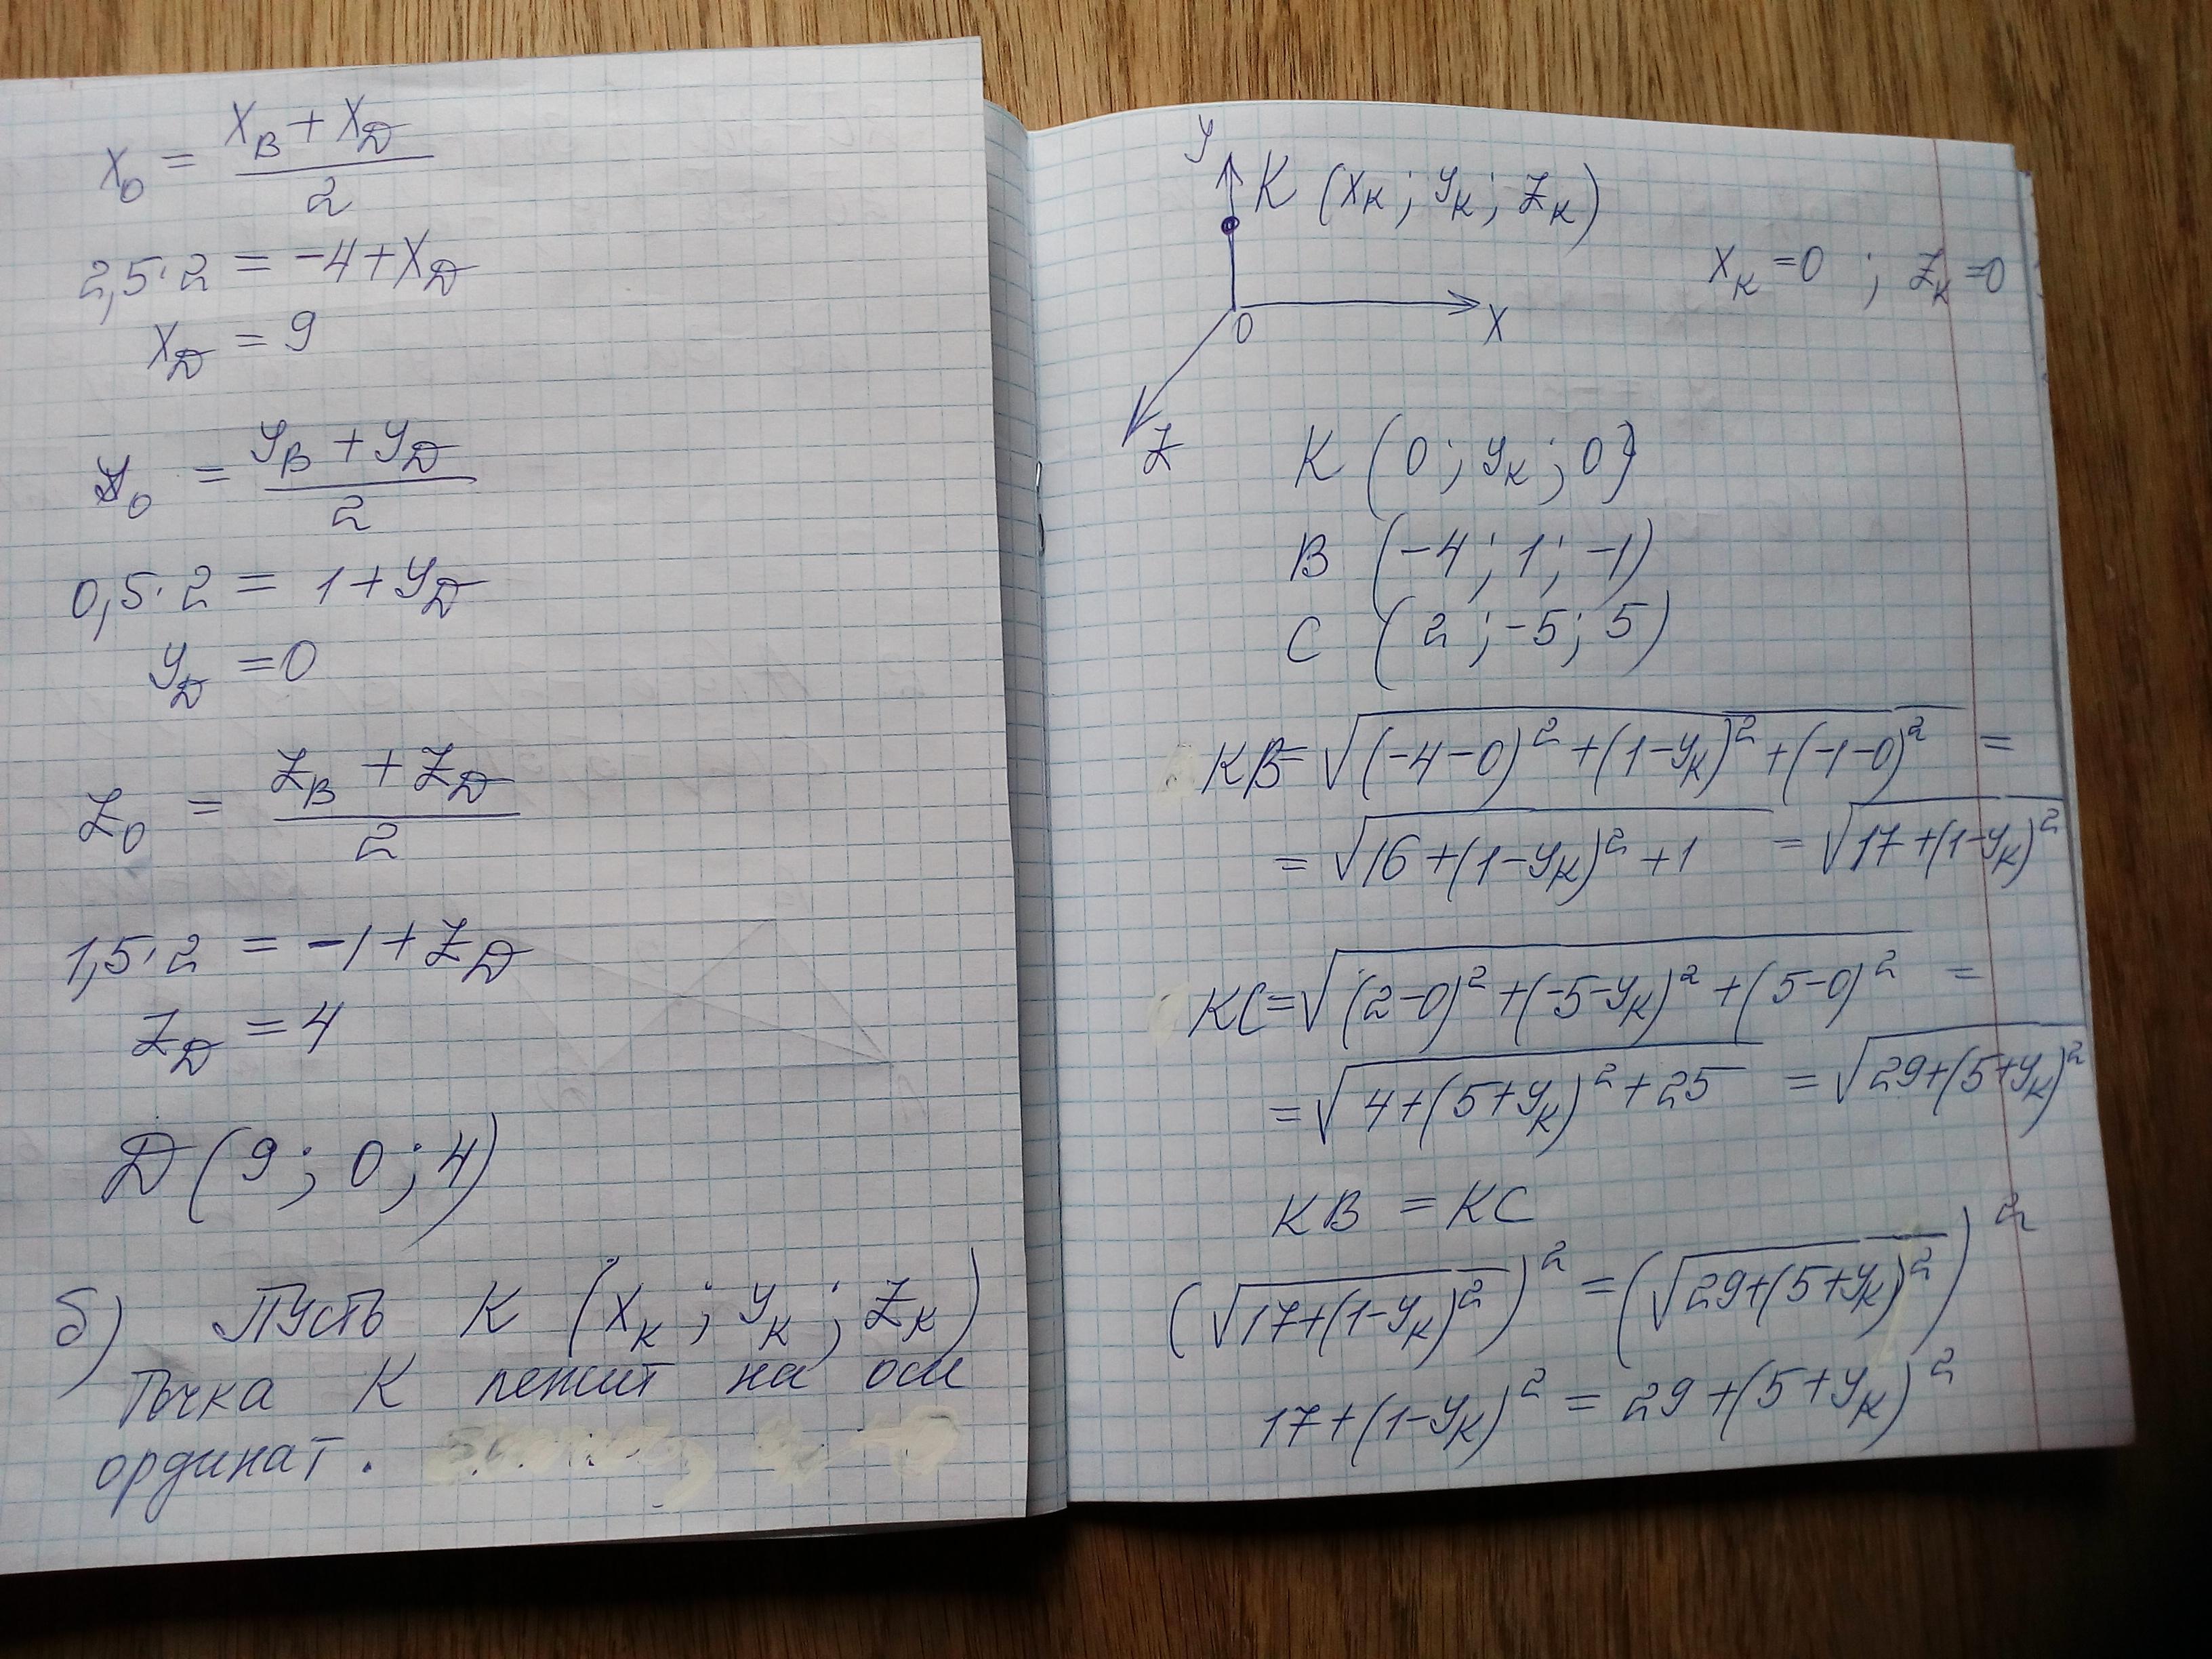 x₀ = (x_B + x_D)/2
2,5·2 = -4 + x_D
x_D = 9
y₀ = (y_B + y_D)/2
0,5·2 = 1 + y_D
y_D = 0
z₀ = (z_B + z_D)/2
1,5·2 = -1 + z_D
z_D = 4
D (9; 0; 4)
б) Пусть K (x_K; y_K; z_K)
Точка K лежит на оси
ординат.
y
K (x_K; y_K; z_K)
x_K = 0 ; z_K = 0
0
x
z
K (0; y_K; 0)
B (-4; 1; -1)
C (2; -5; 5)
KB = √((-4-0)² + (1-y_K)² + (-1-0)²) =
= √(16 + (1-y_K)² + 1) = √(17 + (1-y_K)²)
KC = √((2-0)² + (-5-y_K)² + (5-0)²) =
= √(4 + (5+y_K)² + 25) = √(29 + (5+y_K)²)
KB = KC
(√(17 + (1-y_K)²))² = (√(29 + (5+y_K)²))²
17 + (1-y_K)² = 29 + (5+y_K)²